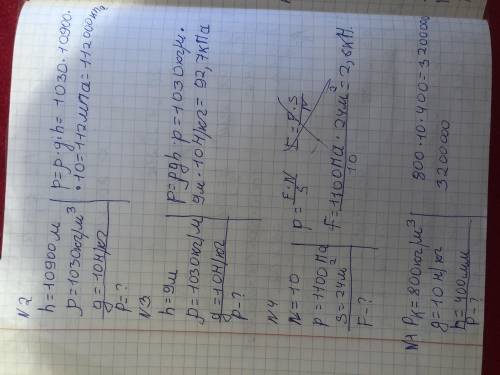 N2
h=10900м
p=1030кг/м³
g=10Н/кг
P-?
p=p·g·h=1030·10900·
·10=112мПа=112000кПа
N3
h=9м
p=1030кг/м
g=10Н/кг
p-?
p=pgh p=1030кг/м·
9м·10Н/кг=92,7кПа
N4
N=10
p=1100Па
S=24м²
F-?
p=F·N/S
F=P·S/N
F=1100Па·24м²/10=2,6кН.
N1
Pк=800кг/м³
g=10Н/кг
h=400мм
P-?
800·10·400=3200000
3200000